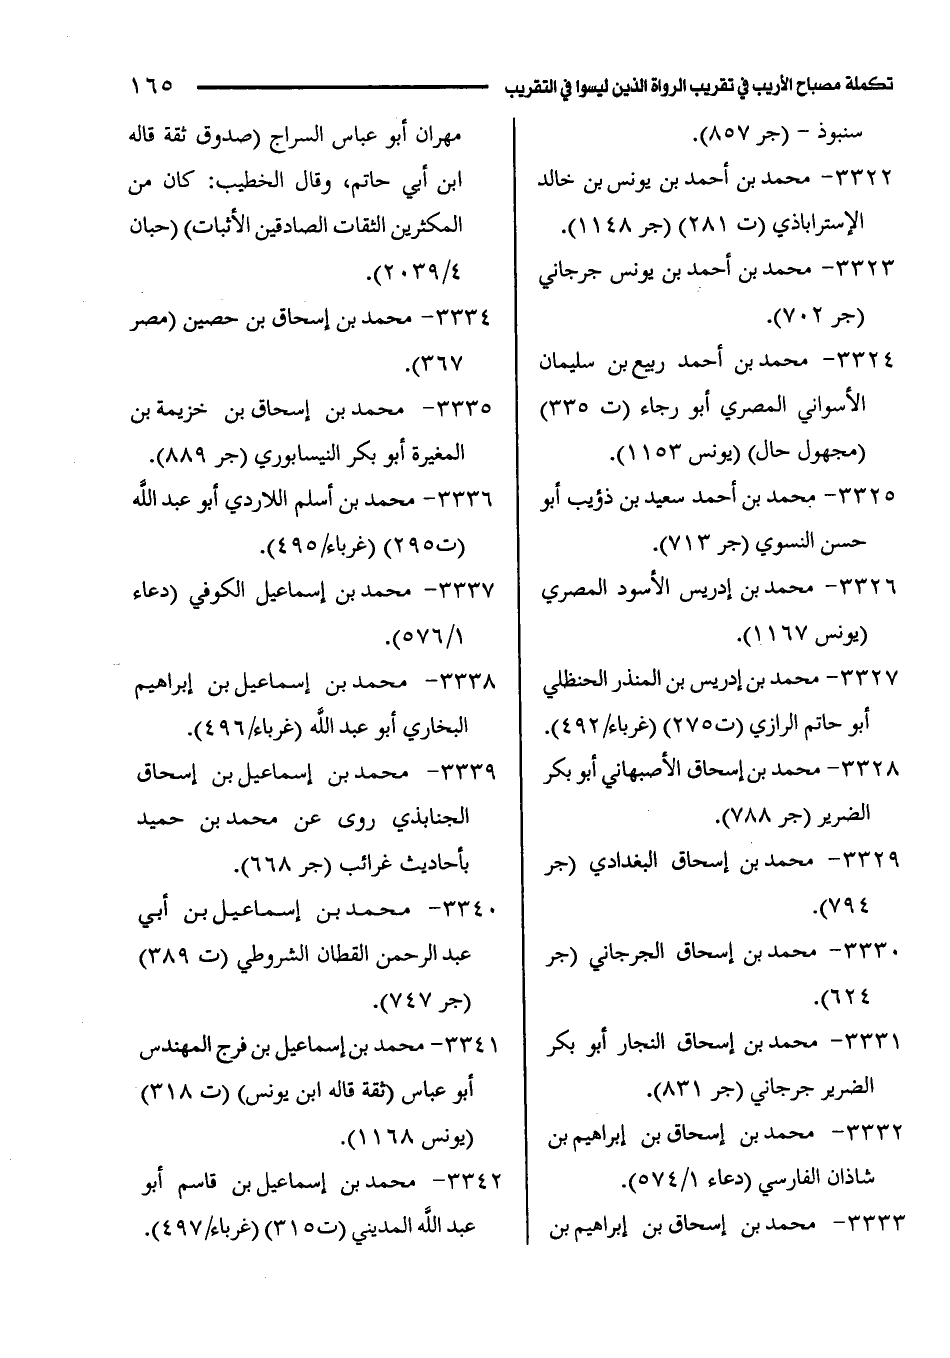 تكملة مصباح الأريب في تقريب الرواة الذين ليسوا في التقريب ١٦٥
سنبوذ - (جر ٨٥٧).
٣٣٢٢- محمد بن أحمد بن يونس بن خالد
الإستراباذي (ت ٢٨١) (جر ١١٤٨).
٣٣٢٣- محمد بن أحمد بن يونس جرجاني
(جر ٧٠٢).
٣٣٢٤- محمد بن أحمد ربيع بن سليمان
الأسواني المصري أبو رجاء (ت ٣٣٥)
(مجهول حال) (يونس ١١٥٣).
٣٣٢٥- محمد بن أحمد سعيد بن ذؤيب أبو
حسن النسوي (جر ٧١٣).
٣٣٢٦- محمد بن إدريس الأسود المصري
(يونس ١١٦٧).
٣٣٢٧- محمد بن إدريس بن المنذر الحنظلي
أبو حاتم الرازي (ت٢٧٥) (غرباء/٤٩٢).
٣٣٢٨- محمد بن إسحاق الأصبهاني أبو بكر
الضرير (جر ٧٨٨).
٣٣٢٩- محمد بن إسحاق البغدادي (جر
٧٩٤).
٣٣٣٠- محمد بن إسحاق الجرجاني (جر
٦٢٤).
٣٣٣١- محمد بن إسحاق النجار أبو بكر
الضرير جرجاني (جر ٨٣١).
٣٣٣٢- محمد بن إسحاق بن إبراهيم بن
شاذان الفارسي (دعاء ٥٧٤/١).
٣٣٣٣- محمد بن إسحاق بن إبراهيم بن
مهران أبو عباس السراج (صدوق ثقة قاله
ابن أبي حاتم، وقال الخطيب: كان من
المكثرين الثقات الصادقين الأثبات) (حبان
٢٠٣٩/٤).
٣٣٣٤- محمد بن إسحاق بن حصين (مصر
٣٦٧).
٣٣٣٥- محمد بن إسحاق بن خزيمة بن
المغيرة أبو بكر النيسابوري (جر ٨٨٩).
٣٣٣٦- محمد بن أسلم اللاردي أبو عبد اللَّه
(ت٢٩٥) (غرباء/٤٩٥).
٣٣٣٧- محمد بن إسماعيل الكوفي (دعاء
٥٧٦/١).
٣٣٣٨- محمد بن إسماعيل بن إبراهيم
البخاري أبو عبد اللَّه (غرباء/٤٩٦).
٣٣٣٩- محمد بن إسماعيل بن إسحاق
الجنابذي روى عن محمد بن حميد
بأحاديث غرائب (جر ٦٦٨).
٣٣٤٠- محمد بن إسماعيل بن أبي
عبد الرحمن القطان الشروطي (ت ٣٨٩)
(جر ٧٤٧).
٣٣٤١- محمد بن إسماعيل بن فرج المهندس
أبو عباس (ثقة قاله ابن يونس) (ت ٣١٨)
(يونس ١١٦٨).
٣٣٤٢- محمد بن إسماعيل بن قاسم أبو
عبد اللَّه المديني (ت٣١٥) (غرباء/٤٩٧).